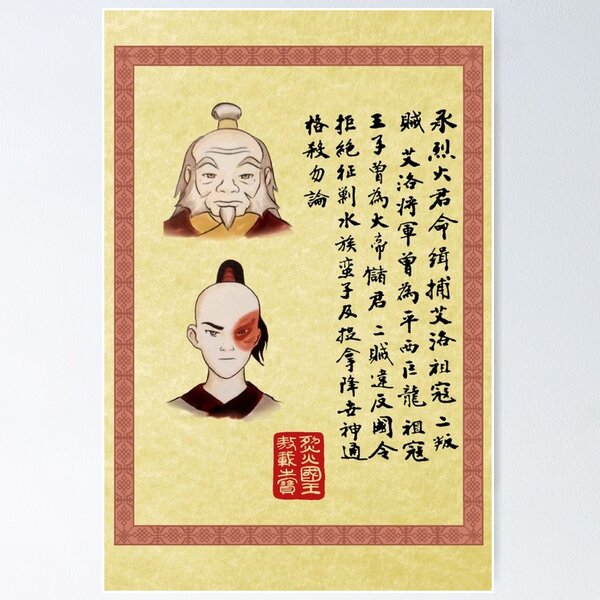 承烈火君命緝捕艾洛祖寇二叛
賊艾洛將軍曾為平西巨龍祖寇
王子曾為大帝儲君二賊違反國令
拒絕征剿水族蠻子及捉拿降世神通
格殺勿論
烈火國王
敕載之寶